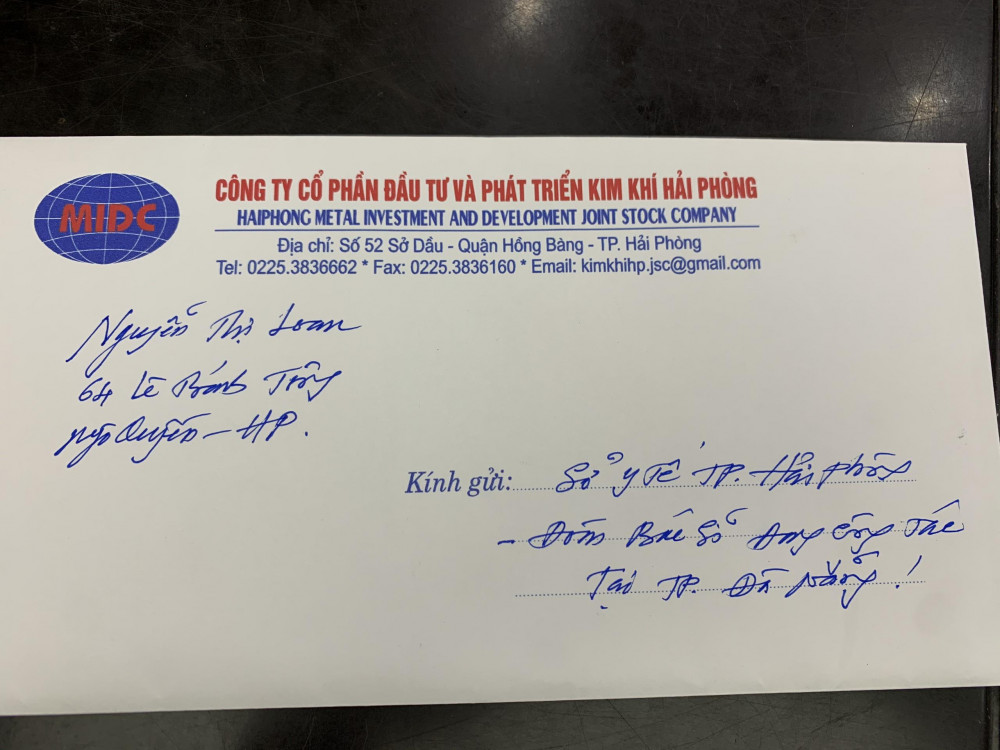 MIDC
CÔNG TY CỔ PHẦN ĐẦU TƯ VÀ PHÁT TRIỂN KIM KHÍ HẢI PHÒNG
HAIPHONG METAL INVESTMENT AND DEVELOPMENT JOINT STOCK COMPANY
Địa chỉ: Số 52 Sở Dầu - Quận Hồng Bàng - TP. Hải Phòng
Tel: 0225.3836662 * Fax: 0225.3836160 * Email: kimkhihp.jsc@gmail.com
Nguyễn Thị Loan
64 Lê Thánh Tông
Ngô Quyền - HP.
Kính gửi: Sở y tế TP. Hải phòng
- Đoàn Bác Sĩ đang công tác
Tại TP. Đà Nẵng!